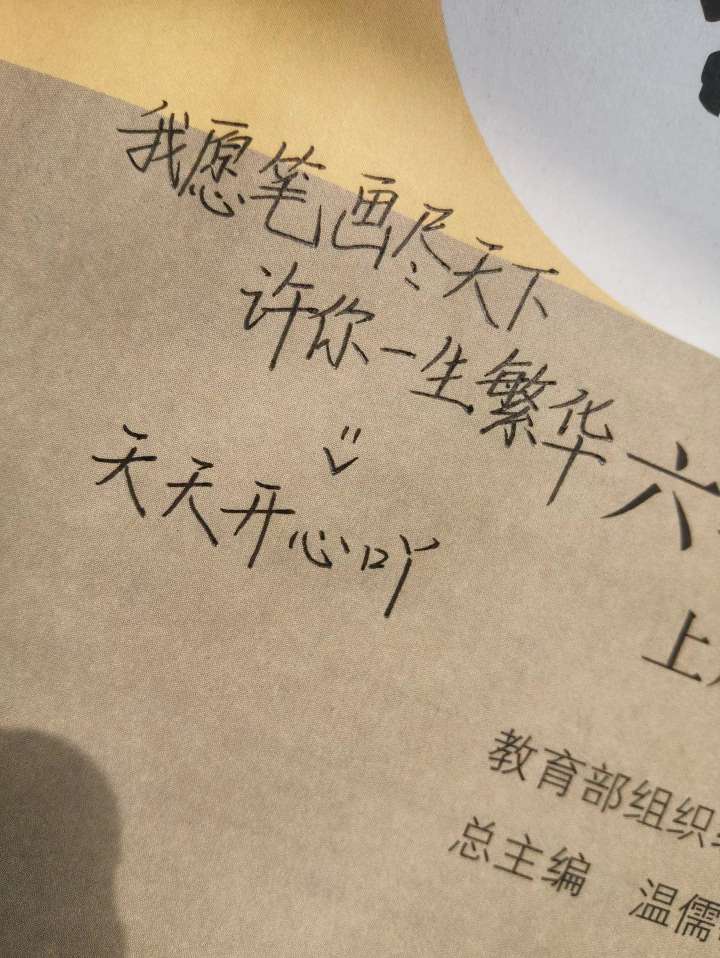 我愿笔画尽天下
许你一生繁华
天天开心吖
六
上
教育部组织
总主编 温儒